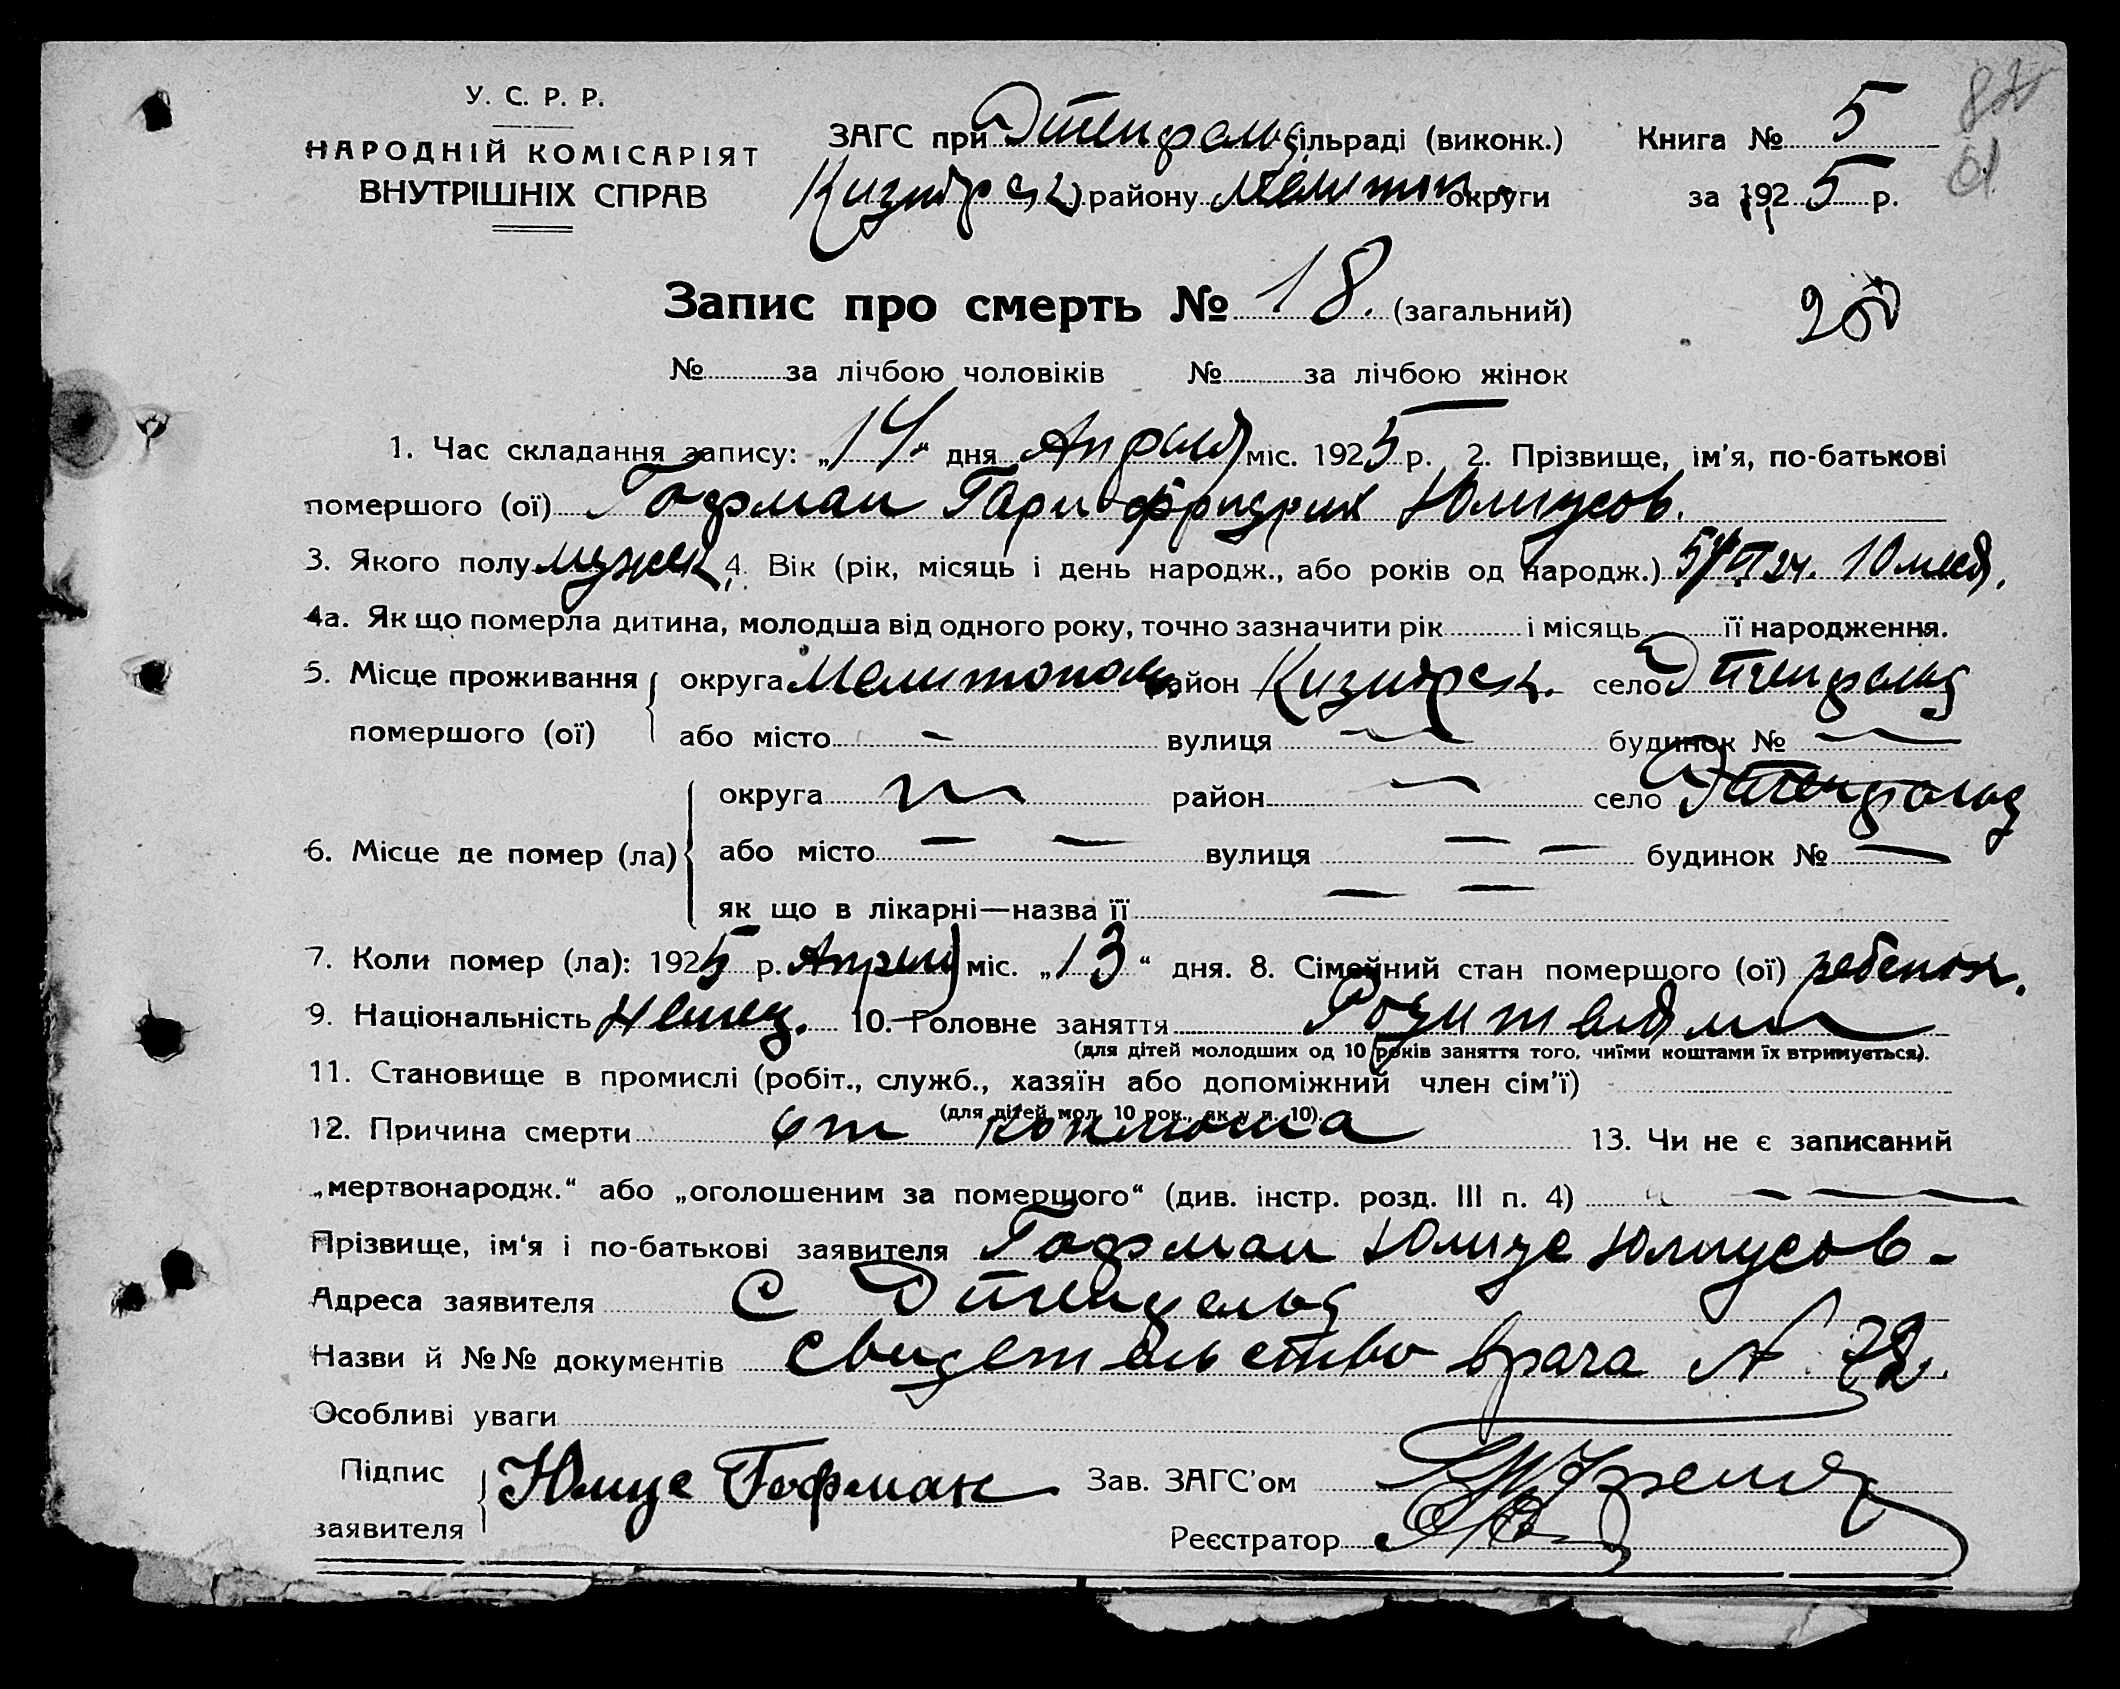 У. С. Р. Р.
НАРОДНІЙ КОМІСАРІЯТ
ВНУТРІШНІХ СПРАВ
ЗАГС при сільраді (виконк.)
району Мелитоп округи
Книга № 5
за 1925 р.
82
Запис про смерть № 18. (загальний)
№ за лічбою чоловіків № за лічбою жінок
1. Час складання запису: „14“ дня Апреля міс. 1925 р. 2. Прізвище, ім'я, по-батькові
помершого (ої) Гофман Гари Фридрих Юлиусов.
3. Якого полу мужск 4. Вік (рік, місяць і день народж., або років од народж.) 5/VI 24. 10 мес.
4а. Як що померла дитина, молодша від одного року, точно зазначити рік і місяць її народження.
5. Місце проживання помершого (ої) { округа Мелитополь район село
або місто — вулиця — будинок № —
6. Місце де помер (ла) { округа район — село
або місто — — вулиця — — будинок № —
як що в лікарні—назва її — —
7. Коли помер (ла): 1925 р. Апреля міс. „13“ дня. 8. Сімейний стан помершого (ої) ребенок.
9. Національність Немец. 10. Головне заняття Родителями
(для дітей молодших од 10 років заняття того, чиїми коштами їх втримується).
11. Становище в промислі (робіт., служб., хазяїн або допоміжний член сім'ї)
(для дітей мол. 10 рок., як у п. 10).
12. Причина смерти от коклюша 13. Чи не є записаний
„мертвонародж.“ або „оголошеним за помершого“ (див. інстр. розд. III п. 4) — —
Прізвище, ім'я і по-батькові заявителя Гофман Юлиус Юлиусов-
Адреса заявителя С
Назви й №№ документів свидетельство врача № 72.
Особливі уваги
Підпис заявителя { Юлиус Гофман Зав. ЗАГС'ом
Реєстратор